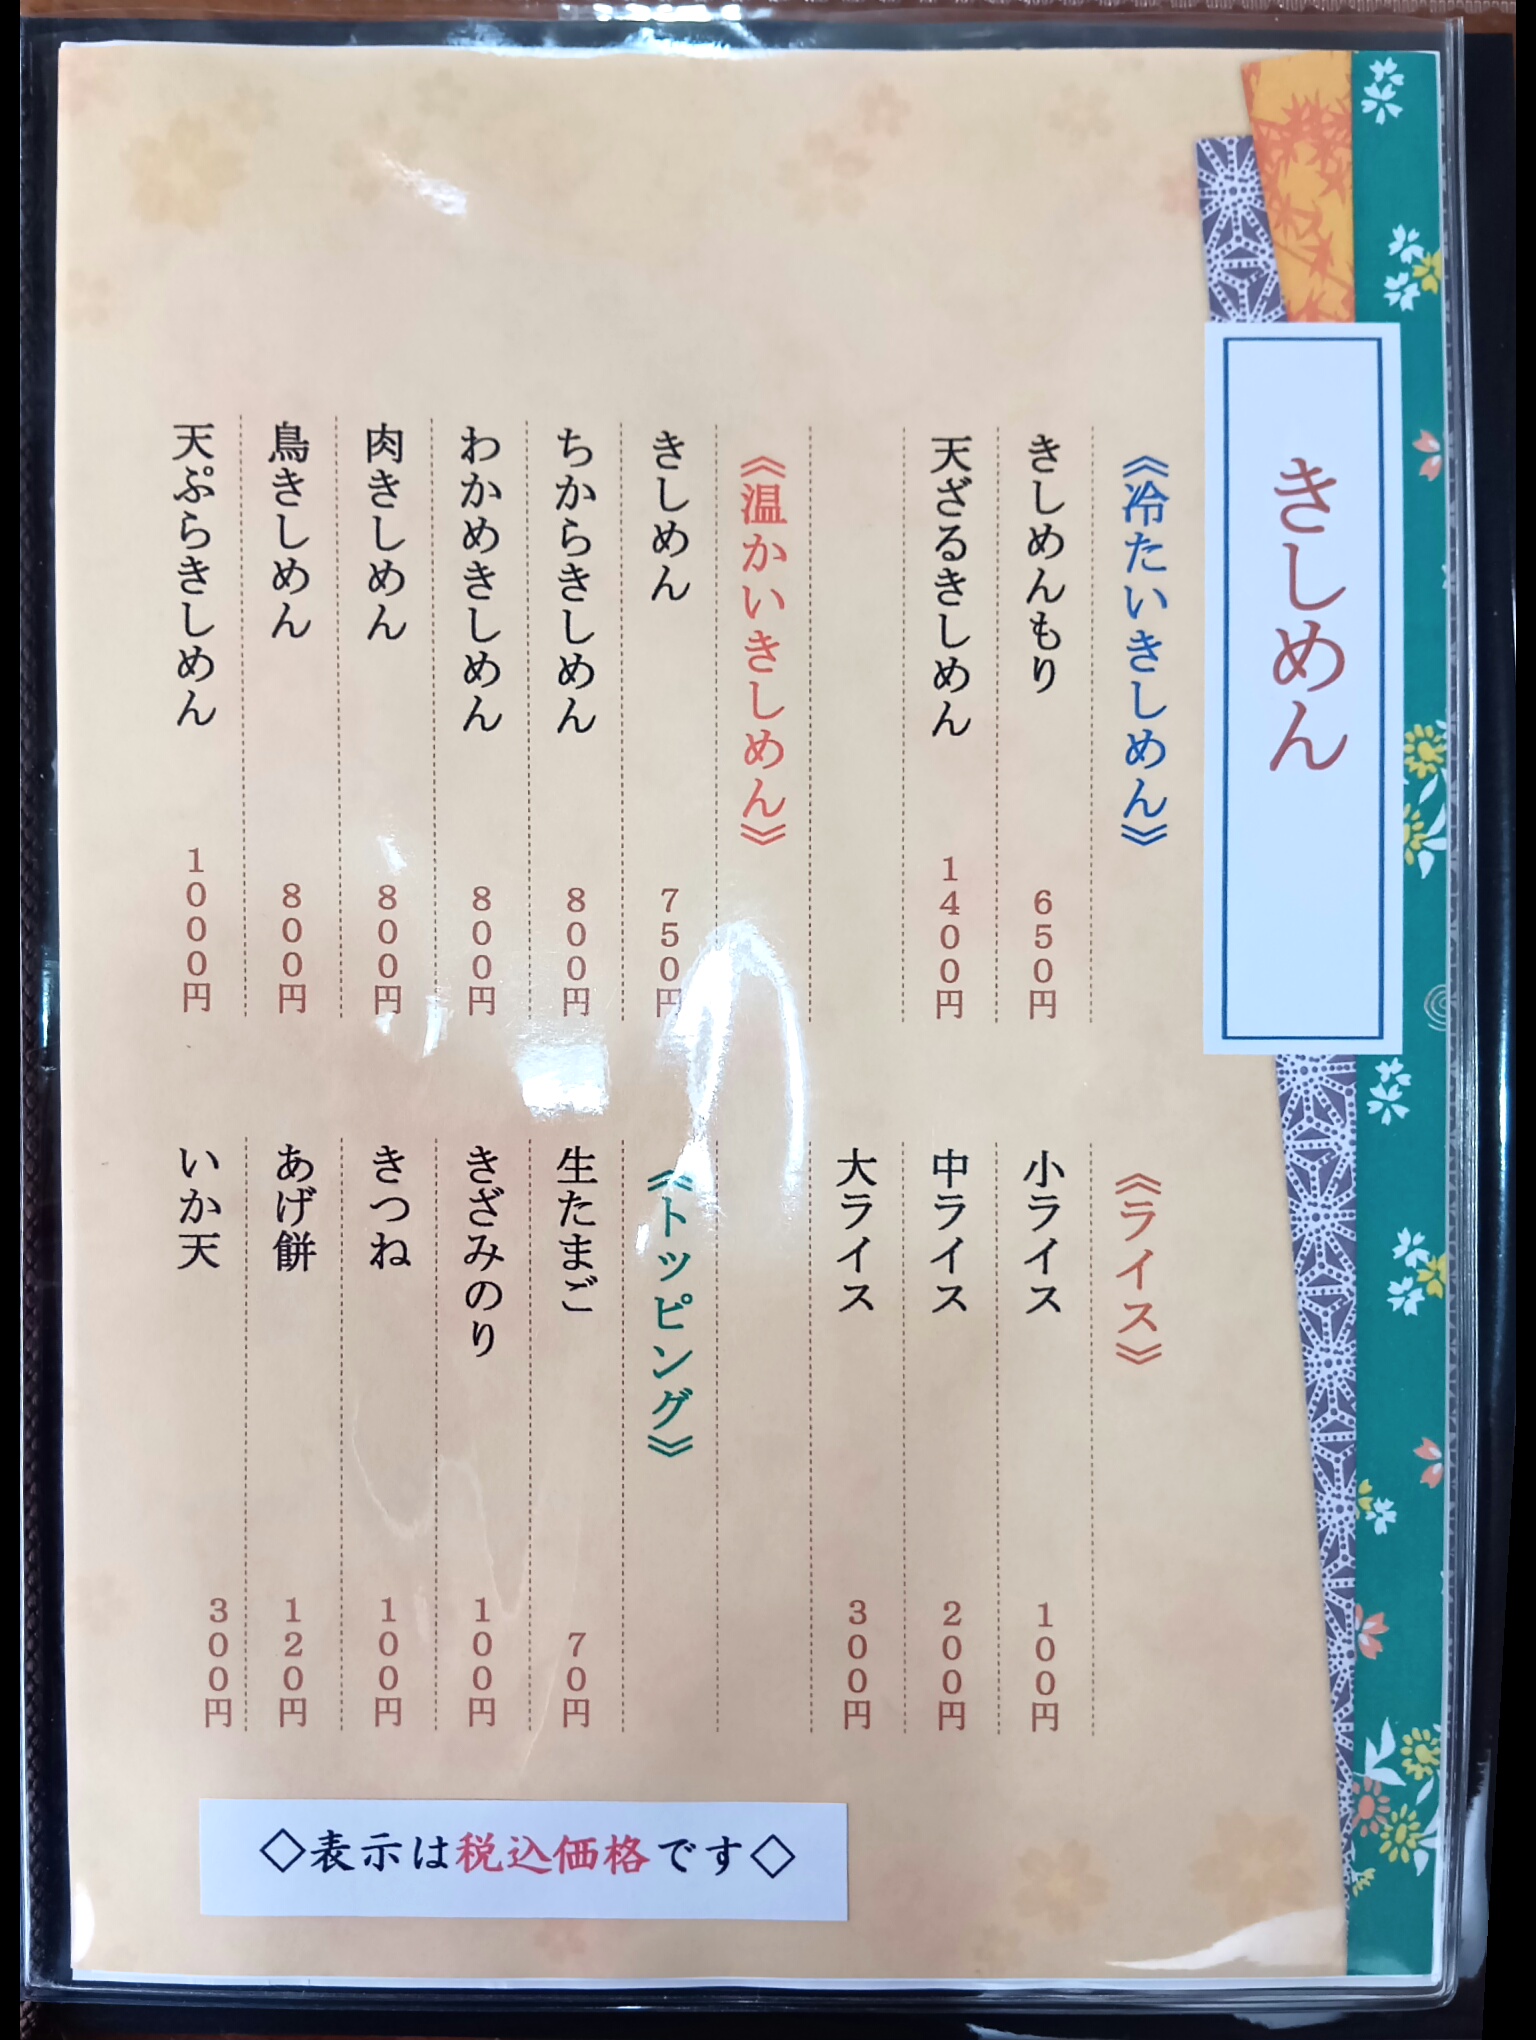 きしめん
《冷たいきしめん》
きしめんもり 650円
天ざるきしめん 1400円
《温かいきしめん》
きしめん 750円
ちからきしめん 800円
わかめきしめん 800円
肉きしめん 800円
鳥きしめん 800円
天ぷらきしめん 1000円
《ライス》
小ライス 100円
中ライス 200円
大ライス 300円
《トッピング》
生たまご 70円
きざみのり 100円
きつね 100円
あげ餅 120円
いか天 300円
◇表示は税込価格です◇